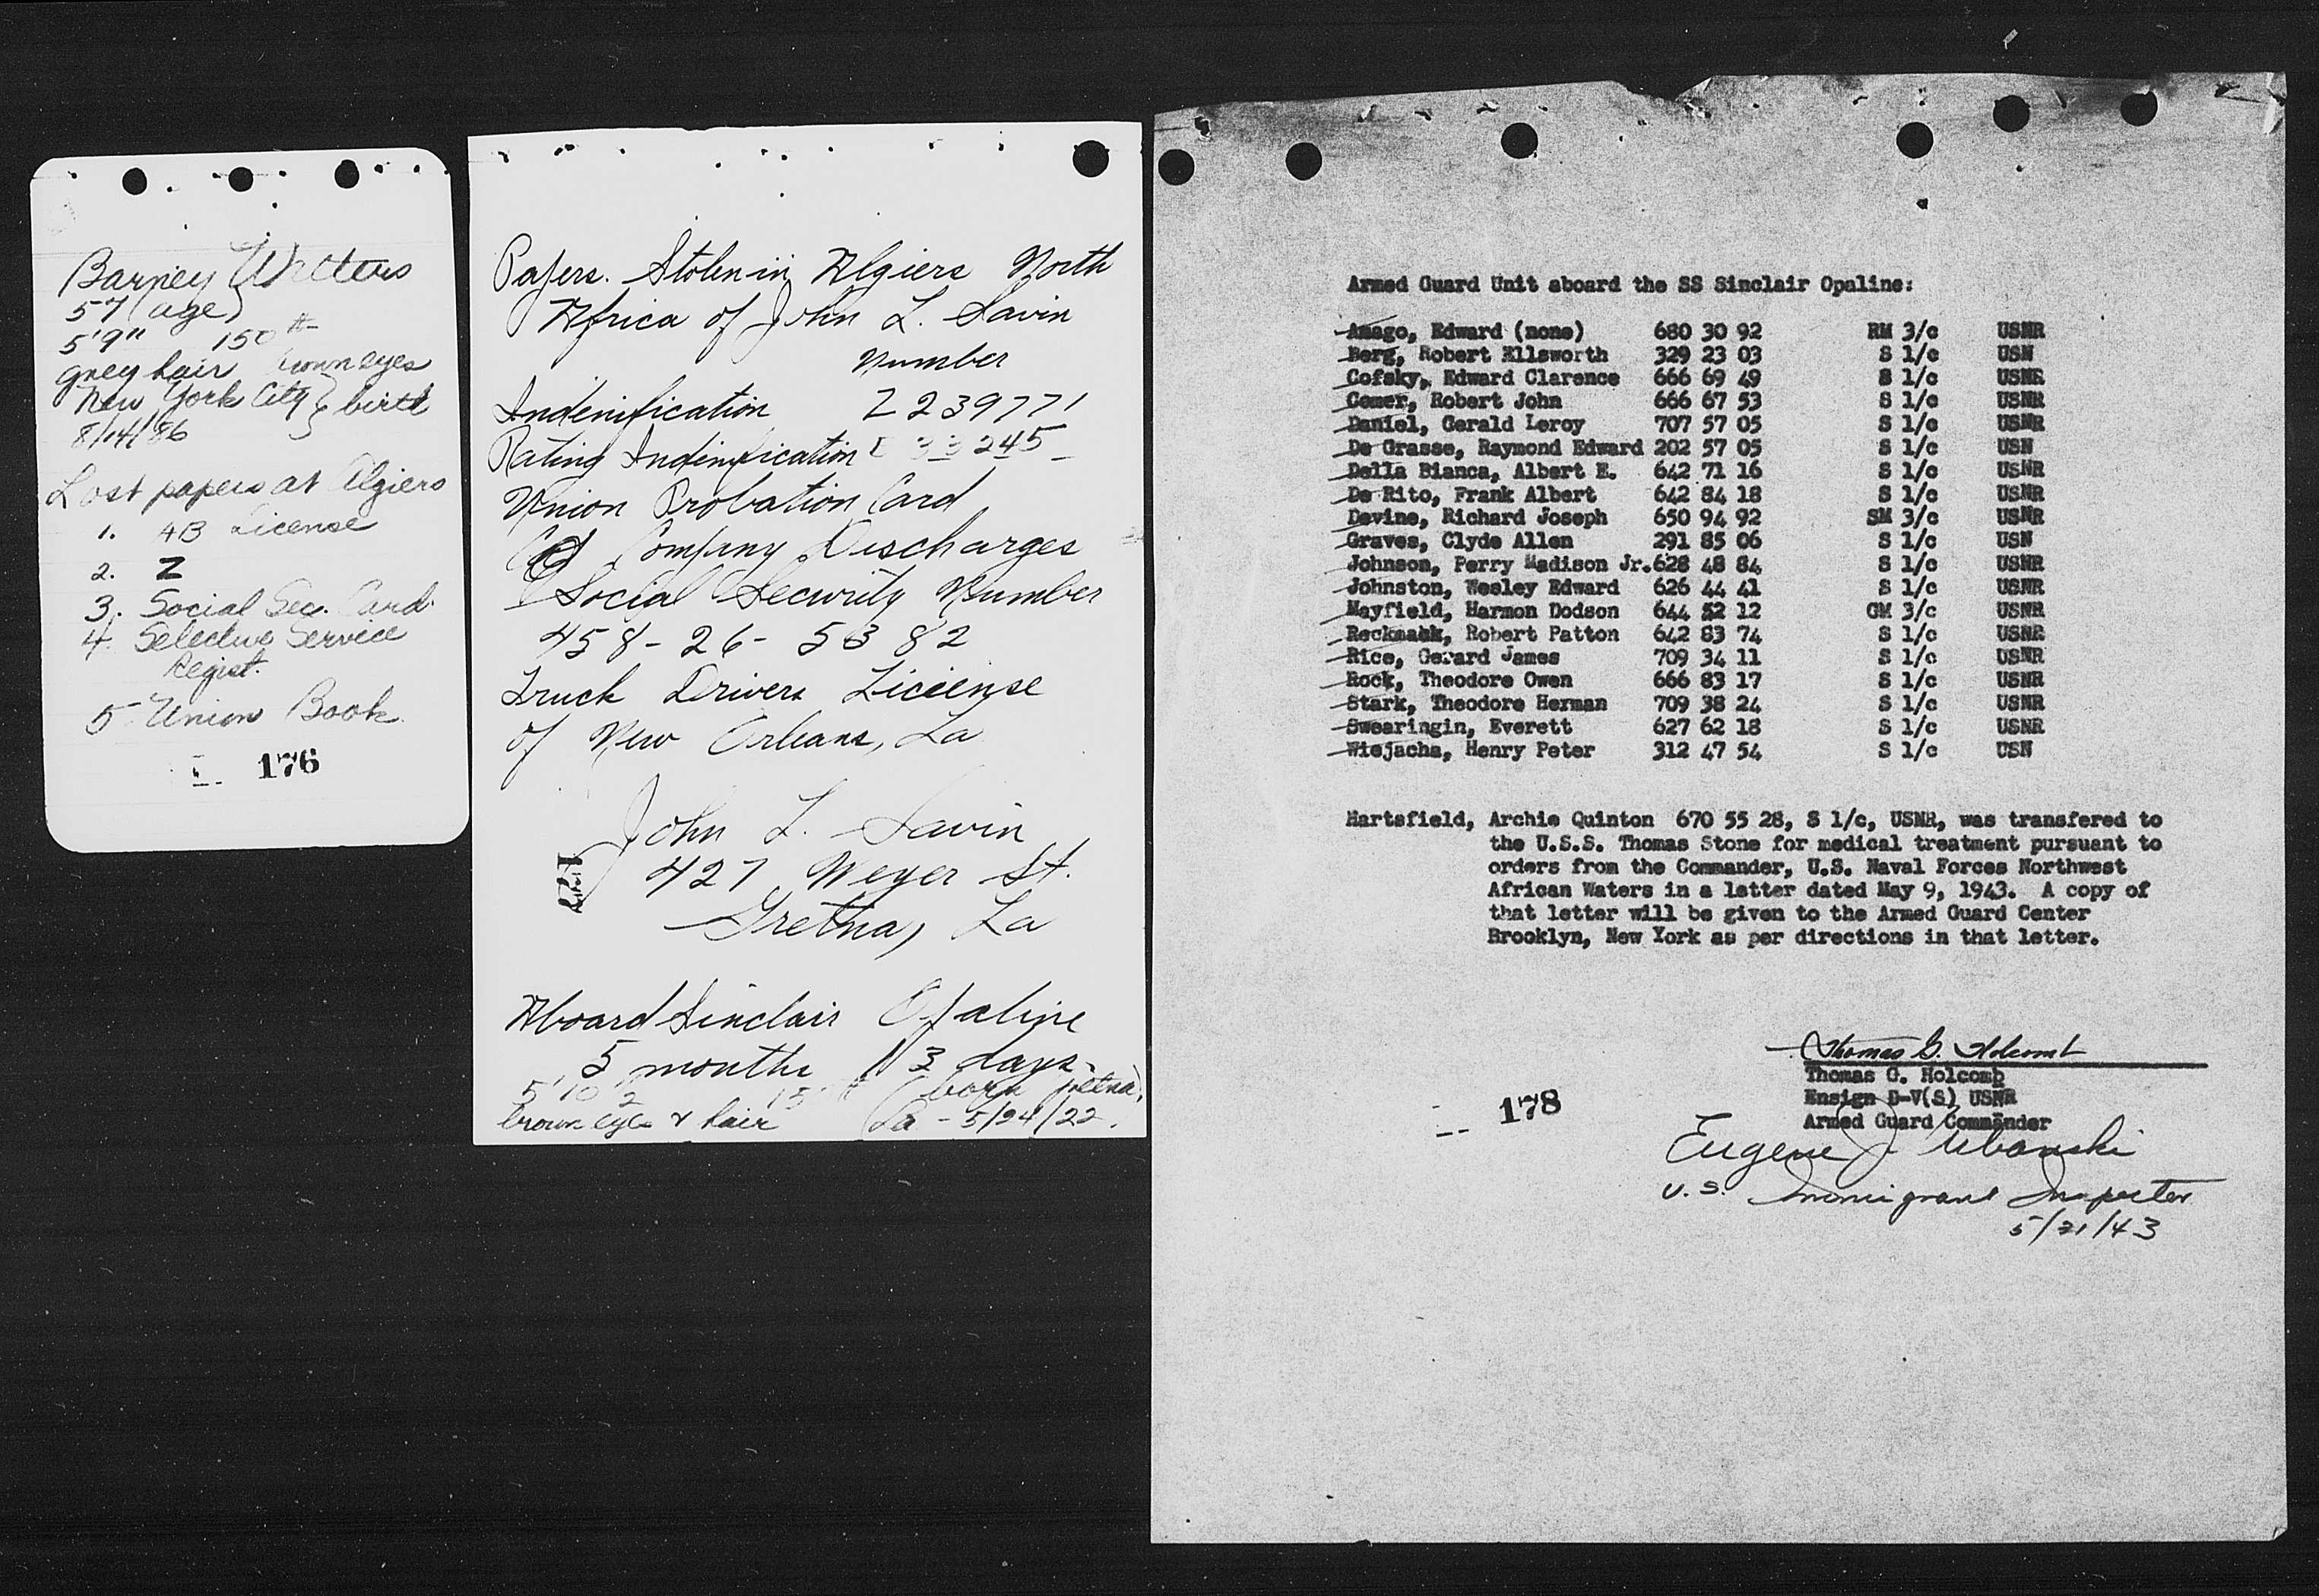 Barney
57 (age)
5'9" 150 #
grey hair brown eyes
New York City } birth
8/14/86
Lost papers at Algiers
1. AB License
2. Z
3. Social Sec. Card.
4. Selective Service
Regist.
5 Union Book.
176
Papers. Stolen in Algiers North
Africa of John L. Savin
Number
Indenification Z 239771
Rating Indinification 245
Union Probation Card
Company Discharges
Social Security Number
458-26-5382
Truck Drivers Liciense
of New Orleans, La
John L. Savin
427 Weyer St.
Gretna, La
177
Aboard Sinclair Opaline
5 months 13 days.
5'10 born Gretna,
brown eyes & hair La - 5/24/22.
Armed Guard Unit aboard the SS Sinclair Opaline:
Amago, Edward (none) 680 30 92 RM 3/c USNR
Berg, Robert Ellsworth 329 23 03 S 1/c USN
Cofsky, Edward Clarence 666 69 49 S 1/c USNR
Comer, Robert John 666 67 53 S 1/c USNR
Daniel, Gerald Leroy 707 57 05 S 1/c USNR
De Grasse, Raymond Edward 202 57 05 S 1/c USN
Della Bianca, Albert E. 642 71 16 S 1/c USNR
De Rito, Frank Albert 642 84 18 S 1/c USNR
Devine, Richard Joseph 650 94 92 SM 3/c USNR
Graves, Clyde Allen 291 85 06 S 1/c USN
Johnson, Perry Madison Jr. 628 48 84 S 1/c USNR
Johnston, Wesley Edward 626 44 41 S 1/c USNR
Mayfield, Harmon Dodson 644 52 12 GM 3/c USNR
Robert Patton 642 83 74 S 1/c USNR
Rice, Gerard James 709 34 11 S 1/c USNR
Rock, Theodore Owen 666 83 17 S 1/c USNR
Stark, Theodore Herman 709 38 24 S 1/c USNR
Swearingin, Everett 627 62 18 S 1/c USNR
Wiejacha, Henry Peter 312 47 54 S 1/c USN
Hartsfield, Archie Quinton 670 55 28, S 1/c, USNR, was transfered to
the U.S.S. Thomas Stone for medical treatment pursuant to
orders from the Commander, U.S. Naval Forces Northwest
African Waters in a letter dated May 9, 1943. A copy of
that letter will be given to the Armed Guard Center
Brooklyn, New York as per directions in that letter.
Thomas G. Holcomb
Thomas G. Holcomb
Ensign D-V(S) USNR
178
Armed Guard Commander
Eugene J Urbanski
U.S. Immigrant Inspector
5/21/43